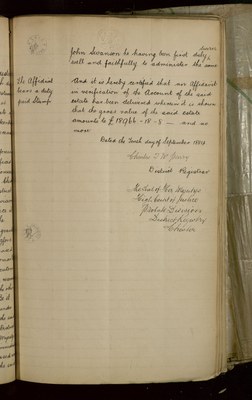 John Swanson he having been first duly sworn
well and faithfully to administer the same
The Affidavit
bears a duty
paid Stamp
And it is hereby certified that an Affidavit
in verification of the Account of the said
estate has been delivered wherein it is shown
that the gross value of the said estate
amounts to £
and no
more
Dated the Tenth day of September
District Registrar
Seal of Her Majesty's
High Court of Justice
Probate Division
District Registry
Chester